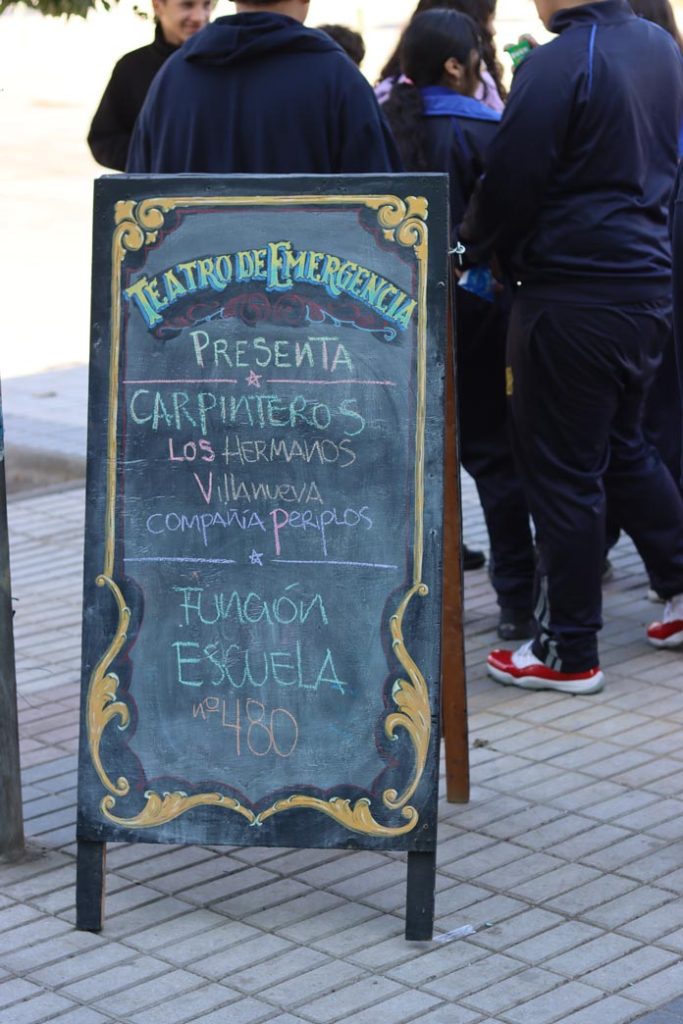 TEATRO DE EMERGENCIA
PRESENTA
CARPINTEROS
LOS HERMANOS
VIllANUEVA
COMPAÑÍA PERIPLOS
FUNCIÓN
ESCUELA
nº480